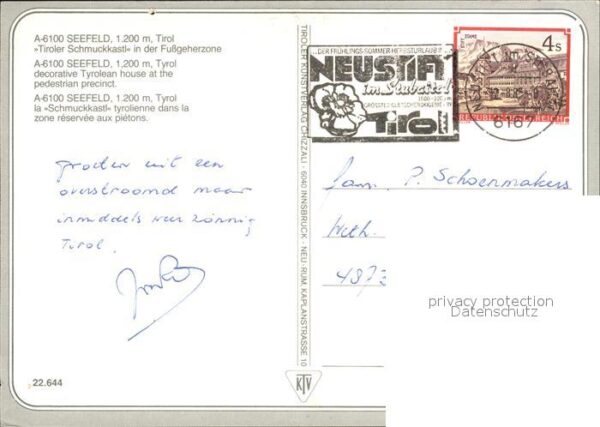 A-6100 SEEFELD, 1.200 m, Tirol
»Tiroler Schmuckkastl« in der Fußgeherzone
A-6100 SEEFELD, 1.200 m, Tyrol
decorative Tyrolean house at the
pedestrian precinct.
A-6100 SEEFELD, 1.200 m, Tyrol
la »Schmuckkastl« tyrolienne dans la
zone réservée aux piétons.
groeten uit een
overstroomd maar
inmiddels weer zonnig
Tirol.
22.644
TIROLER KUNSTVERLAG CHIZZALI - 6040 INNSBRUCK - NEU-RUM, KAPLANSTRASSE 10
KTV
...DER FRÜHLINGS-SOMMER-HERBSTURLAUB
NEUSTIFT
im Stubaital
Tirol
4s
REPUBLIK ÖSTERREICH
6167
Fam. P. Schoenmakers
Weth.
4873
privacy protection
Datenschutz